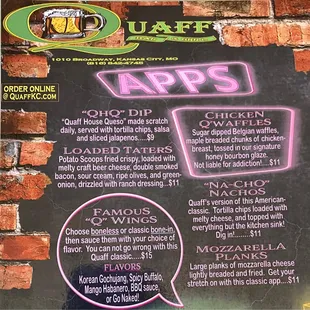 QUAFF
1010 Broadway, Kansas City, MO
ORDER ONLINE
@ QUAFFKC.COM
APPS
"QHQ" DIP
"Quaff House Queso" made scratch
daily, served with tortilla chips, salsa
and sliced jalapenos....$9
LOADED TATERS
Potato Scoops fried crispy, loaded with
melty craft beer cheese, double smoked
bacon, sour cream, ripe olives, and green-
onion, drizzled with ranch dressing...$11
FAMOUS
"Q" WINGS
Choose boneless or classic bone-in,
then sauce them with your choice of
flavor. You can not go wrong with this
classic.....$15
FLAVORS
Korean Gochujang, Spicy Buffalo,
Mango Habanero, BBQ sauce,
or Go Naked!
CHICKEN
Q'WAFFLES
Sugar dipped Belgian waffles,
maple breaded chunks of chicken-
breast, tossed in our signature
honey bourbon glaze.
Not liable for addiction!....$11
"NA-CHO"
NACHOS
Quaff's version of this American-
classic. Tortilla chips loaded with
melty cheese, and topped with
everything but the kitchen sink!
Dig in!........$11
MOZZARELLA
PLANKS
Large planks of mozzarella cheese
lightly breaded and fried. Get your
stretch on with this classic app....$11